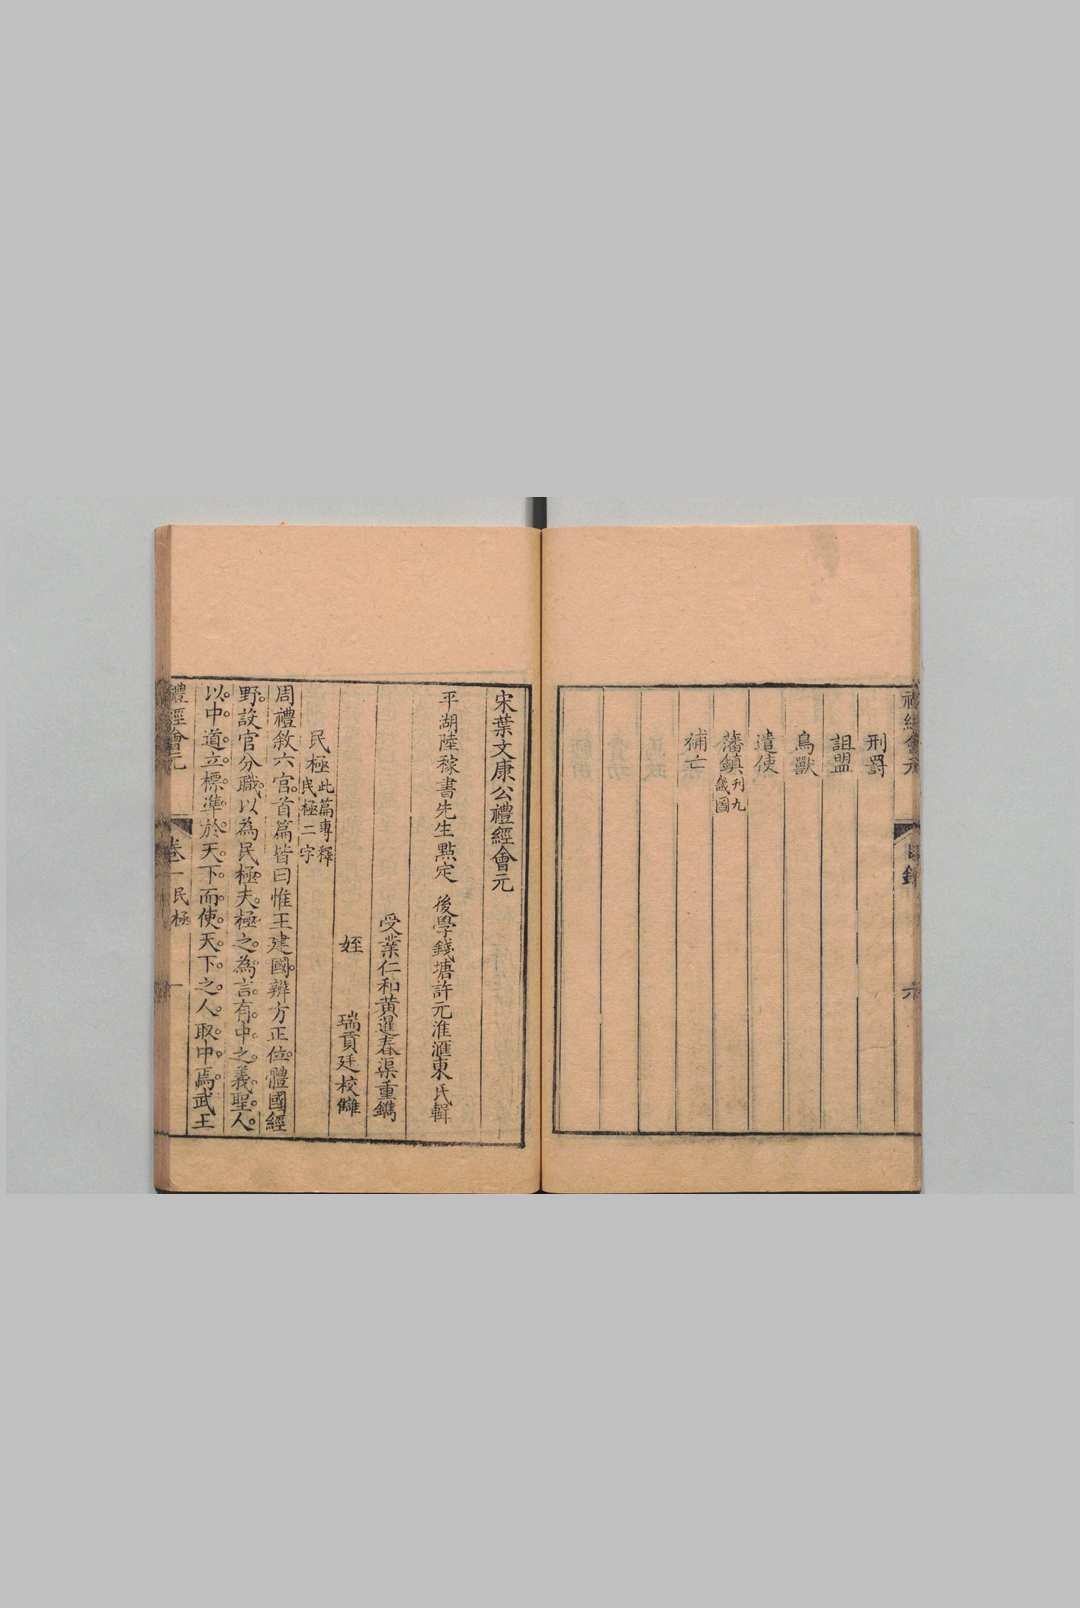 刑罰
詛盟
鳥獸
遣使
藩鎮刊九畿圖
補亡
宋葉文康公禮經會元
平湖陸稼書先生點定 後學錢塘許元淮滙東氏輯
受業仁和黄暹春渠重鐫
姪 瑞貢廷校讎
民極此篇專釋民極二字
周禮敘六官首篇皆曰惟王建國辨方正位體國經
野設官分職以為民極夫極之為言有中之義聖人
以中道立標準於天下而使天下之人取中焉武王
禮經會元 卷一民極 一